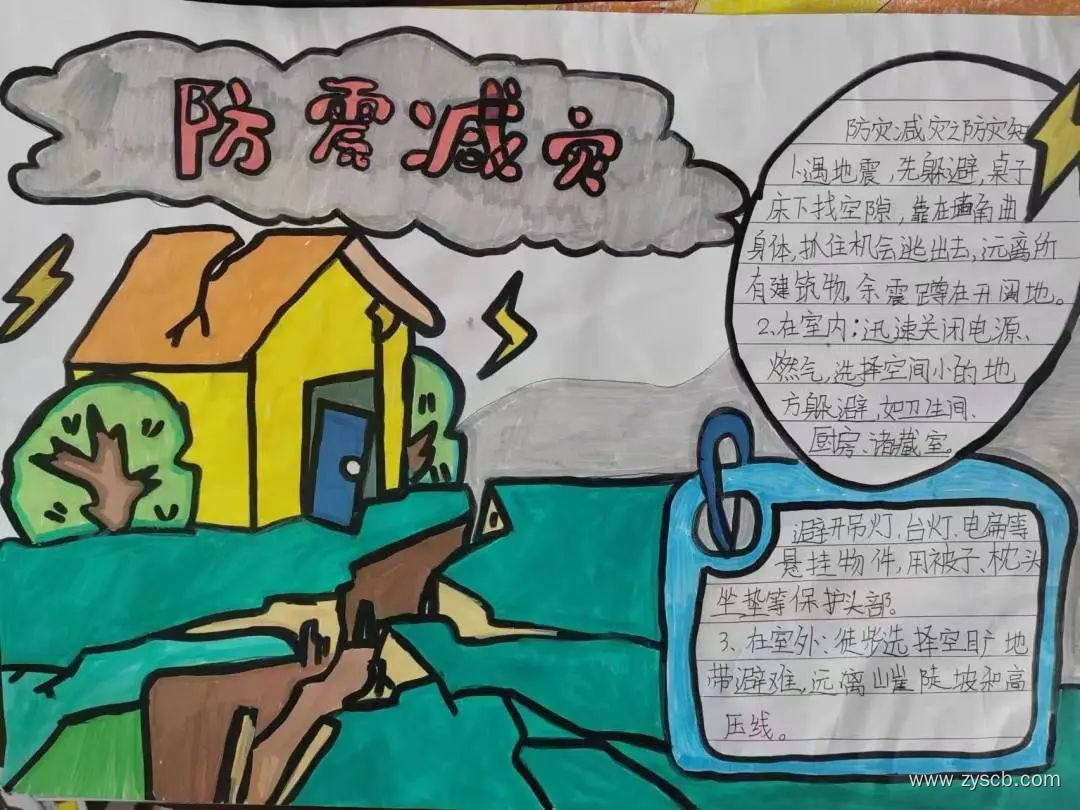 防震减灾
防灾减灾之防灾知
1.遇地震,先躲避,桌子
床下找空隙,靠在墙角曲
身体,抓住机会逃出去,远离所
有建筑物,余震蹲在开阔地。
2.在室内:迅速关闭电源、
燃气,选择空间小的地
方躲避,如卫生间、
厨房、诸藏室。
避开吊灯、台灯、电扇等
悬挂物件,用被子、枕头
坐垫等保护头部。
3、在室外:徒步选择空旷地
带避难,远离山崖陡坡和高
压线。
www.zyscb.com